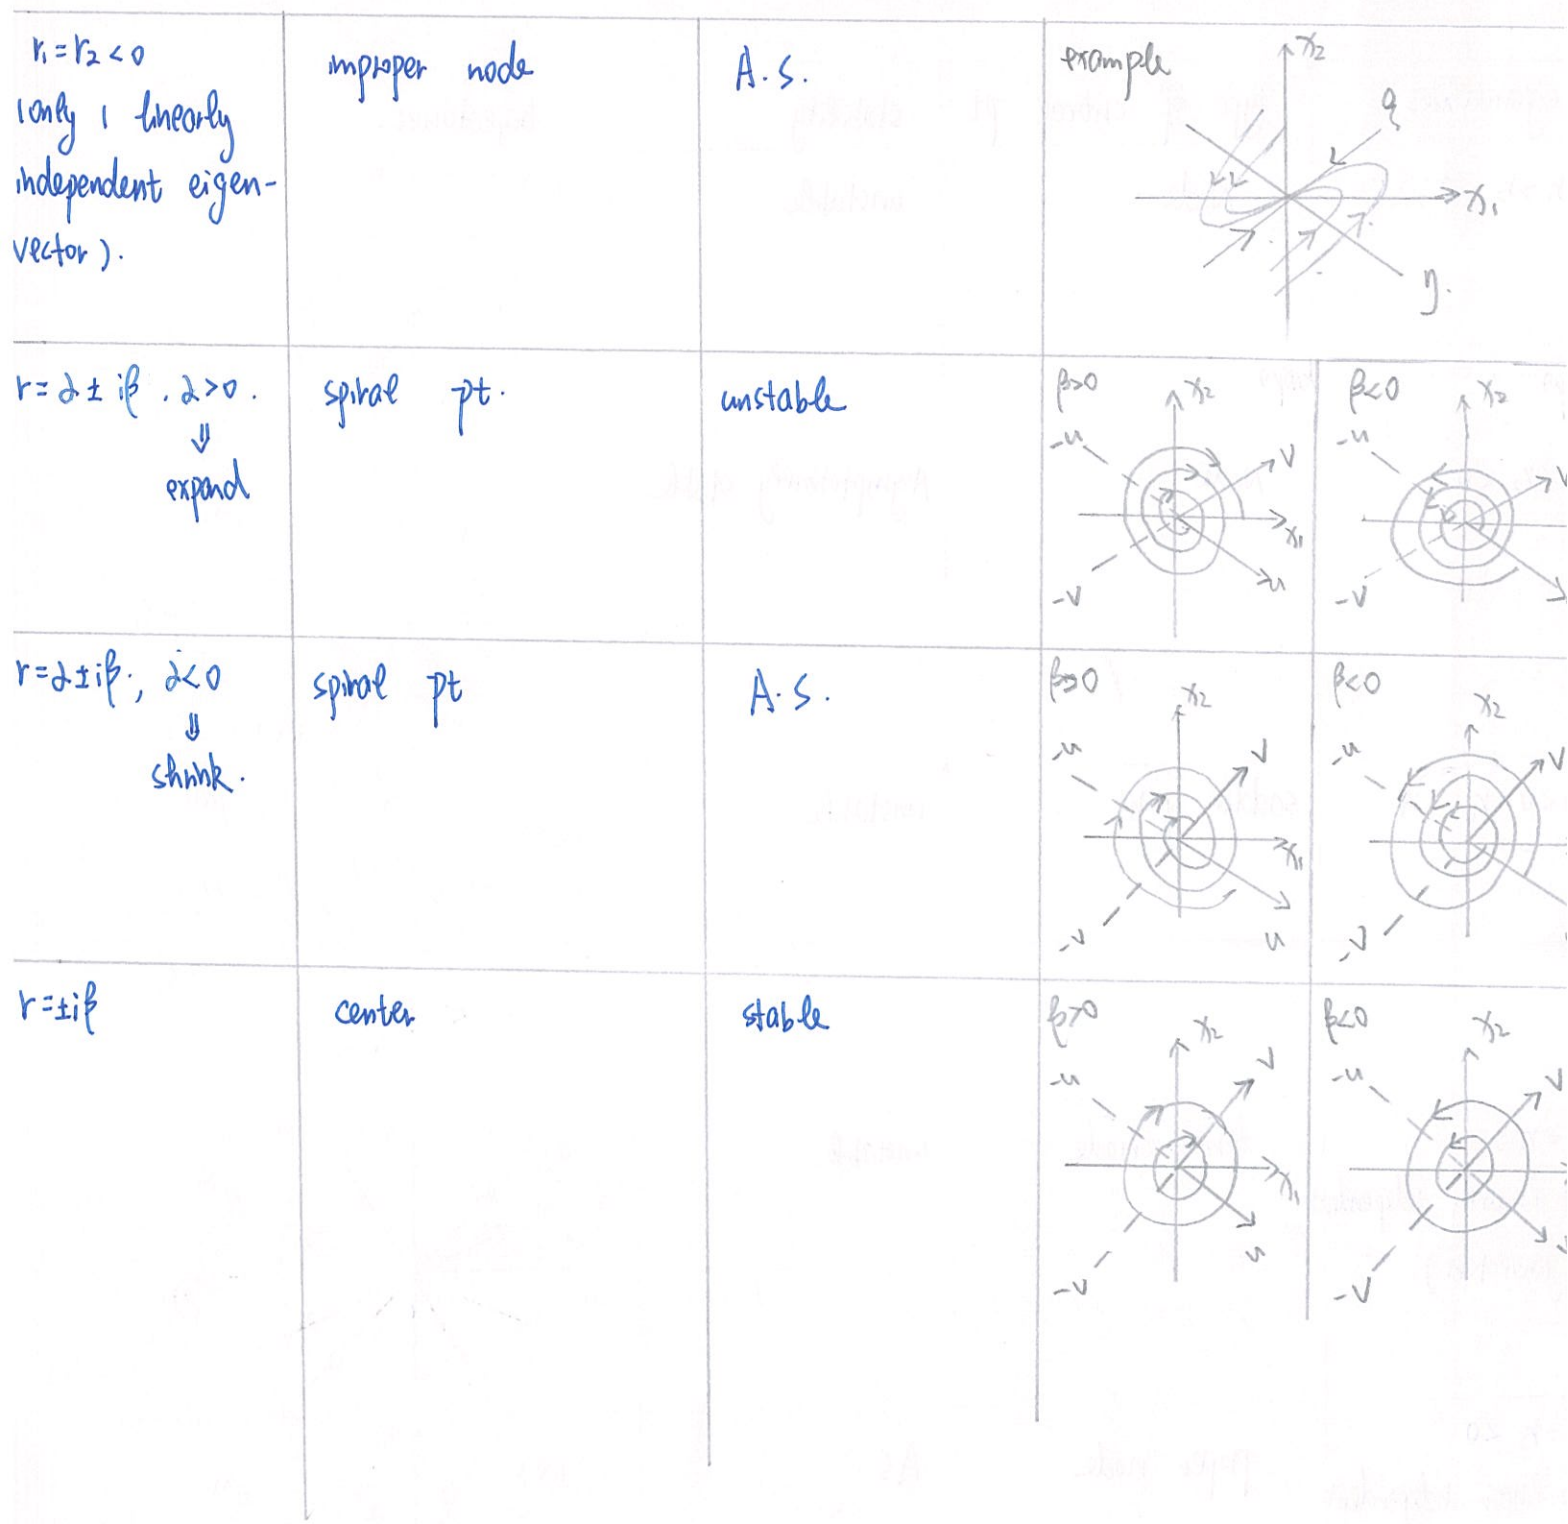 r₁ = r₂ < 0
(only 1 linearly
independent eigen-
vector).
improper node
A.S.
example
x₂
x₁
q
η.
r = α ± iβ . α > 0 .
⇓
expand
spiral pt.
unstable
β>0
x₂
-u
v
x₁
-v
u
β<0
x₂
-u
v
-v
r = α ± iβ., α < 0
⇓
shrink.
spiral pt
A.S.
β>0
x₂
-u
v
x₁
-v
u
β<0
x₂
-u
v
-v
r = ±iβ
center
stable
β>0
x₂
-u
v
x₁
-v
u
β<0
x₂
-u
v
-v